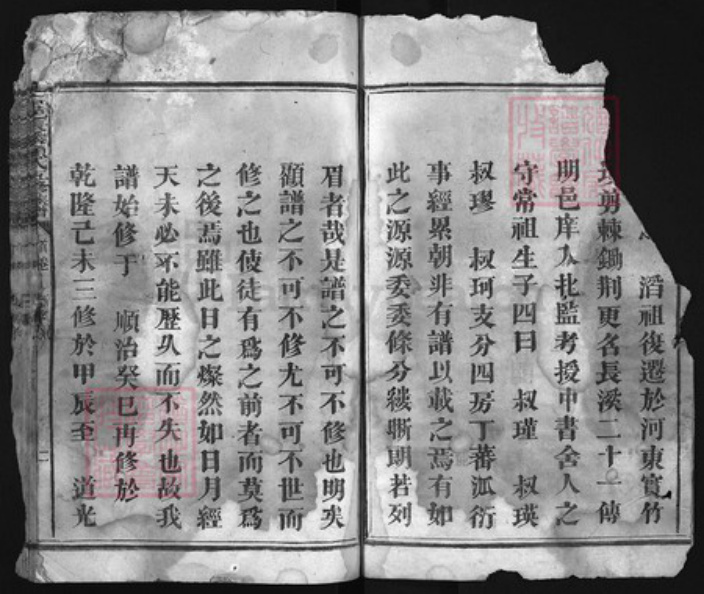 滔祖復遷於河東實竹
長剪棘鋤荆更名長溪二十一傳
明邑庠入北監考授中書舍人之
守常祖生子四曰 叔瑾 叔瑛
叔璆 叔珂支分四房丁蕃派衍
事經累朝非有譜以載之焉有如
此之源源委委條分縷晰朗若列
眉者哉是譜之不可不修也明矣
顧譜之不可不修尤不可不世而
修之也使徒有爲之前者而莫爲
之後焉雖此日之燦然如日月經
天未必不能歷久而不失也故我
譜始修于 順治癸巳再修於
乾隆己未三修於甲辰至 道光